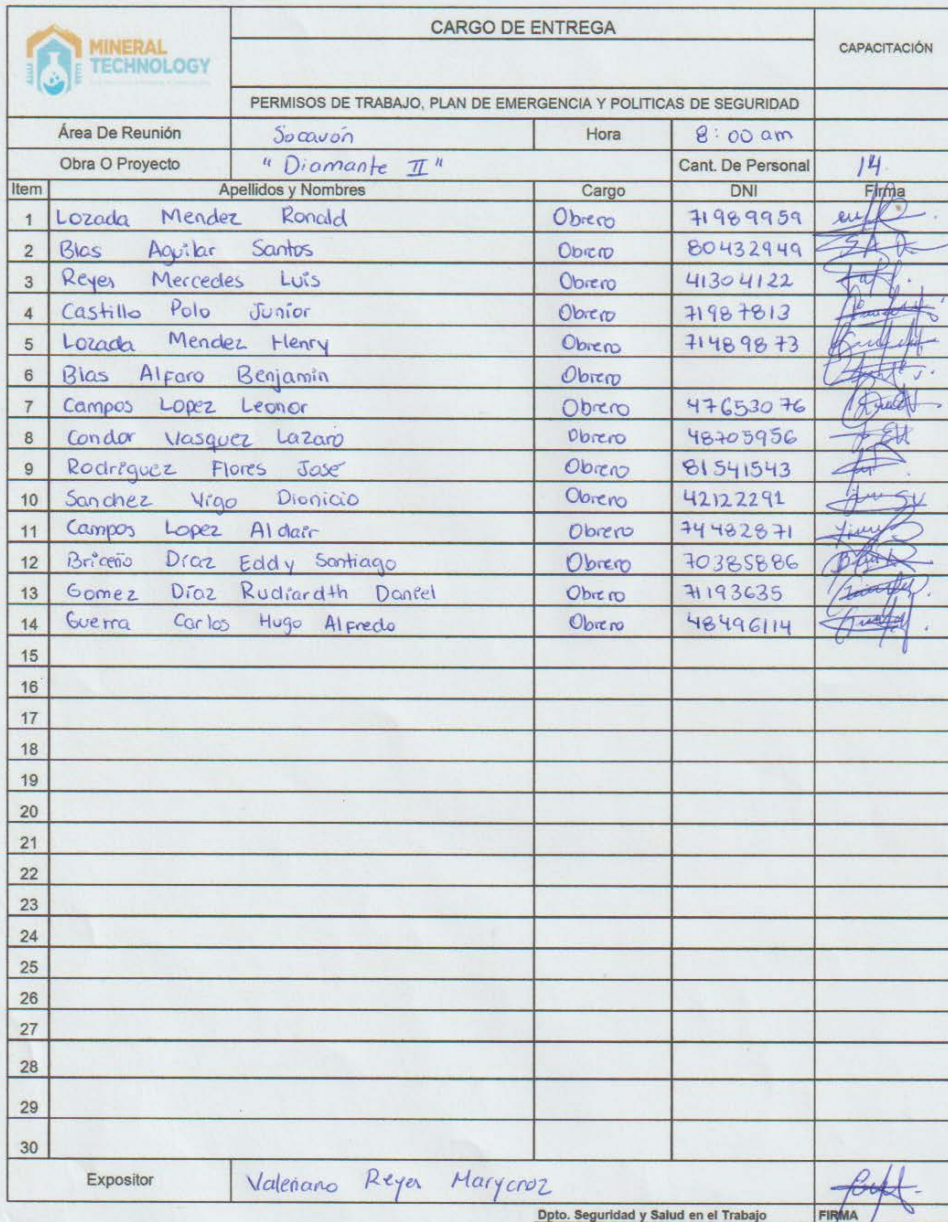 MINERAL
TECHNOLOGY
CARGO DE ENTREGA
CAPACITACIÓN
PERMISOS DE TRABAJO, PLAN DE EMERGENCIA Y POLITICAS DE SEGURIDAD
Área De Reunión Socavón Hora 8:00 am
Obra O Proyecto "Diamante II" Cant. De Personal 14.
Item Apellidos y Nombres Cargo DNI Firma
1 Lozada Mendez Ronald Obrero 71989959
2 Blas Aguilar Santos Obrero 80432949
3 Reyes Mercedes Luis Obrero 41304122
4 Castillo Polo Junior Obrero 71987813
5 Lozada Mendez Henry Obrero 71489873
6 Blas Alfaro Benjamin Obrero
7 Campos Lopez Leonor Obrero 47653076
8 Condor Vasquez Lazaro Obrero 48705956
9 Rodriguez Flores Jose Obrero 81541543
10 Sanchez Vigo Dionicio Obrero 42122291
11 Campos Lopez Aldair Obrero 74482871
12 Briceño Díaz Eddy Santiago Obrero 70385886
13 Gomez Díaz Rudiardth Daniel Obrero 71193635
14 Guerra Carlos Hugo Alfredo Obrero 48496114
15
16
17
18
19
20
21
22
23
24
25
26
27
28
29
30
Expositor Valeriano Reyes Marycruz
Dpto. Seguridad y Salud en el Trabajo FIRMA